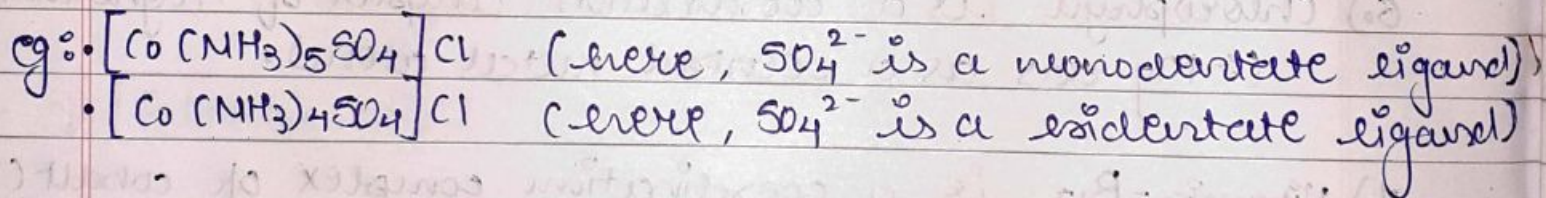 eg:• [Co (NH3)5SO4]Cl (here, SO4²⁻ is a monodentate ligand)
• [Co (NH3)4SO4]Cl (here, SO4²⁻ is a bidentate ligand)